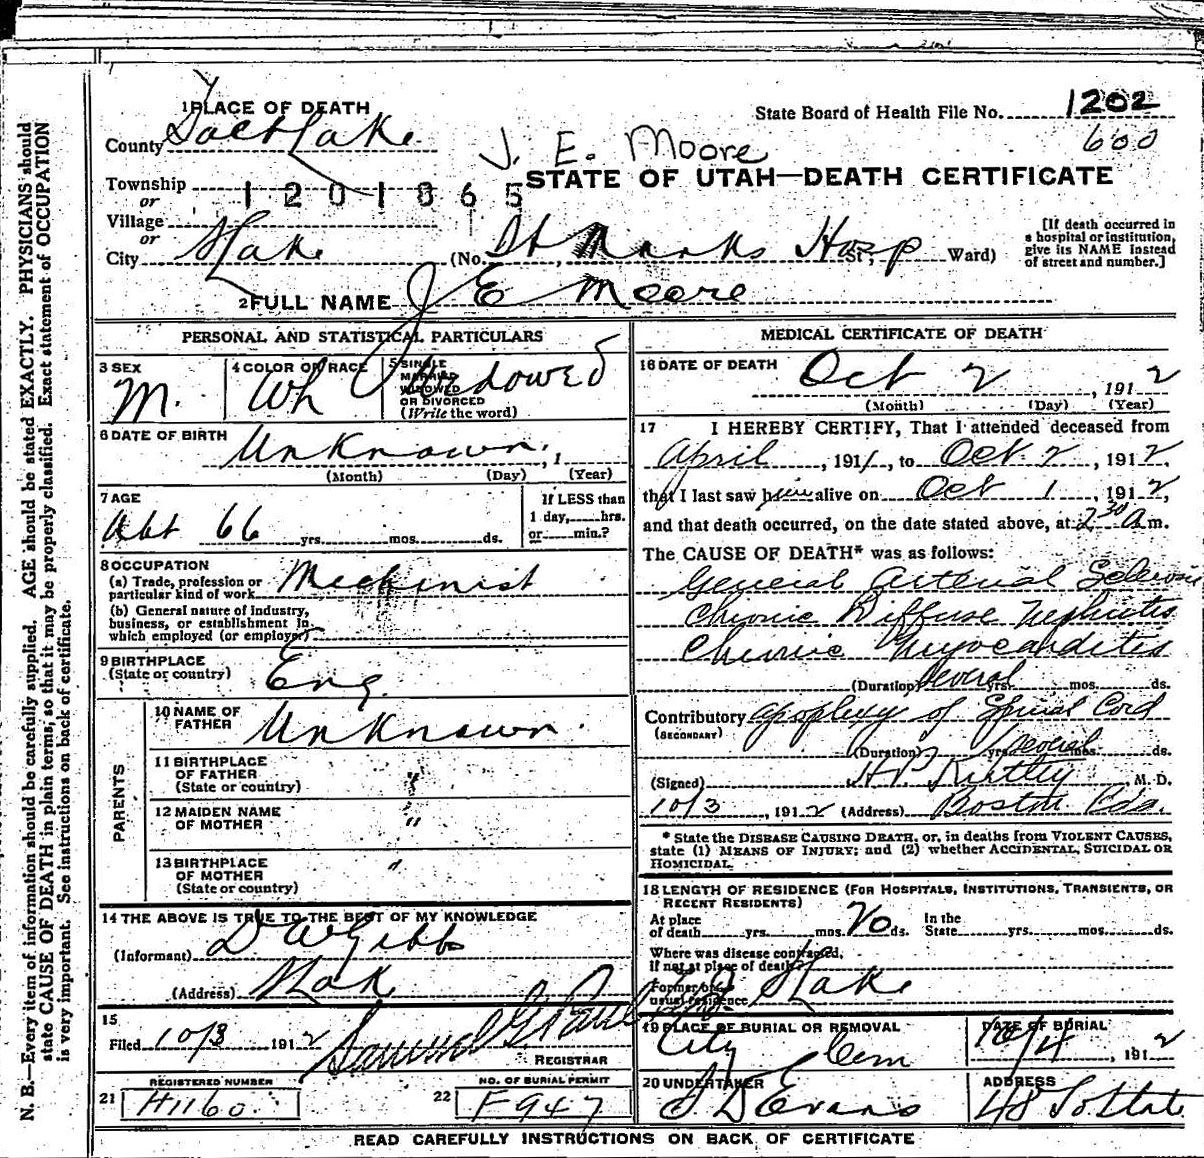 1 PLACE OF DEATH
County Salt Lake
State Board of Health File No. 1202
600
J. E. Moore
Township
or
1201865
STATE OF UTAH—DEATH CERTIFICATE
Village
or
City S Lake (No. St Marks Hosp St; Ward)
[If death occurred in
a hospital or institution,
give its NAME instead
of street and number.]
2 FULL NAME J E Moore
PERSONAL AND STATISTICAL PARTICULARS
3 SEX
M.
4 COLOR OR RACE
Wh
5 SINGLE
MARRIED
WIDOWED
OR DIVORCED
(Write the word)
Widowed
6 DATE OF BIRTH
Unknown, 1
(Month) (Day) (Year)
7 AGE
Abt 66 yrs. mos. ds.
If LESS than
1 day, hrs.
or min.?
8 OCCUPATION
(a) Trade, profession or
particular kind of work Mechinist
(b) General nature of industry,
business, or establishment in
which employed (or employer)
9 BIRTHPLACE
(State or country)
Eng.
PARENTS
10 NAME OF
FATHER
Unknown.
11 BIRTHPLACE
OF FATHER
(State or country)
"
12 MAIDEN NAME
OF MOTHER
"
13 BIRTHPLACE
OF MOTHER
(State or country)
"
14 THE ABOVE IS TRUE TO THE BEST OF MY KNOWLEDGE
(Informant) D W Gibbs
(Address) S Lak
15
Filed 10/3 1912
Samuel G Paul
REGISTRAR
REGISTERED NUMBER
21 H1160.
NO. OF BURIAL PERMIT
22 F947
MEDICAL CERTIFICATE OF DEATH
16 DATE OF DEATH
Oct 2, 1912
(Month) (Day) (Year)
17 I HEREBY CERTIFY, That I attended deceased from
April, 1911, to Oct. 2, 1912,
that I last saw him alive on Oct 1, 1912,
and that death occurred, on the date stated above, at 2 30 a m.
The CAUSE OF DEATH* was as follows:
General Arterial Sclerosis
Chronic Diffuse Nephrites
Chronic Myocardites
(Duration) Several yrs. mos. ds.
Contributory apoplexy of Spinal Cord
(SECONDARY)
(Duration) yrs. Several mos. ds.
(Signed) H.P. Kirtley M. D.
10/3, 1912 (Address) Boston Bldg.
* State the DISEASE CAUSING DEATH, or, in deaths from VIOLENT CAUSES,
state (1) MEANS OF INJURY; and (2) whether ACCIDENTAL, SUICIDAL OR
HOMICIDAL.
18 LENGTH OF RESIDENCE (FOR HOSPITALS, INSTITUTIONS, TRANSIENTS, OR
RECENT RESIDENTS)
At place
of death yrs. mos. 20 ds.
In the
State yrs. mos. ds.
Where was disease contracted,
if not at place of death?
Former or
usual residence S Lake
19 PLACE OF BURIAL OR REMOVAL
City Cem
DATE OF BURIAL
10/4, 1912
20 UNDERTAKER
S D Evans
ADDRESS
48 So State
READ CAREFULLY INSTRUCTIONS ON BACK OF CERTIFICATE
N. B.—Every item of information should be carefully supplied. AGE should be stated EXACTLY. PHYSICIANS should
state CAUSE OF DEATH in plain terms, so that it may be properly classified. Exact statement of OCCUPATION
is very important. See instructions on back of certificate.